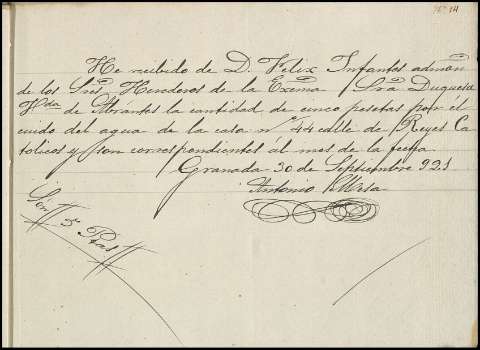 Nº 14
He recibido de D. Felix Infantes admon
de los Sres Herederos de la Excma Sra Duquesa
Vda de Abrantes la cantidad de cinco pesetas por el
cuido del agua de la casa nº 44 calle de Reyes Ca
tolicos y son correspondientes al mes de la fecha
Granada 30 de Septiembre 921
Antonio Mesa
Son // 5 Ptas //